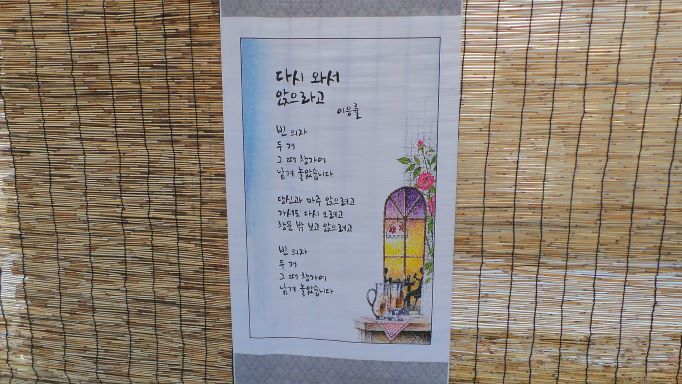 다시 와서
앉으라고
이등률
빈 의자
두 개
그 때 창가에
남겨 놓았습니다
당신과 마주 앉으려고
가셔도 다시 오려고
창문 밖 보고 앉으려고
빈 의자
두 개
그 때 창가에
남겨 놓았습니다